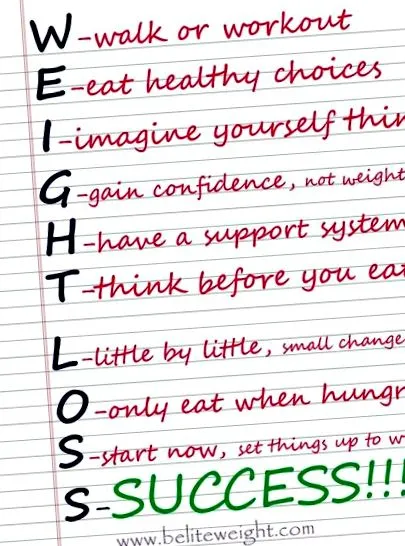 W-walk or workout
E-eat healthy choices
I-imagine yourself thin
G-gain confidence, not weight
H-have a support system
T-think before you eat
L-little by little, small change
O-only eat when hungr
S-start now, set things up to w
S-SUCCESS!!!
www.beliteweight.com